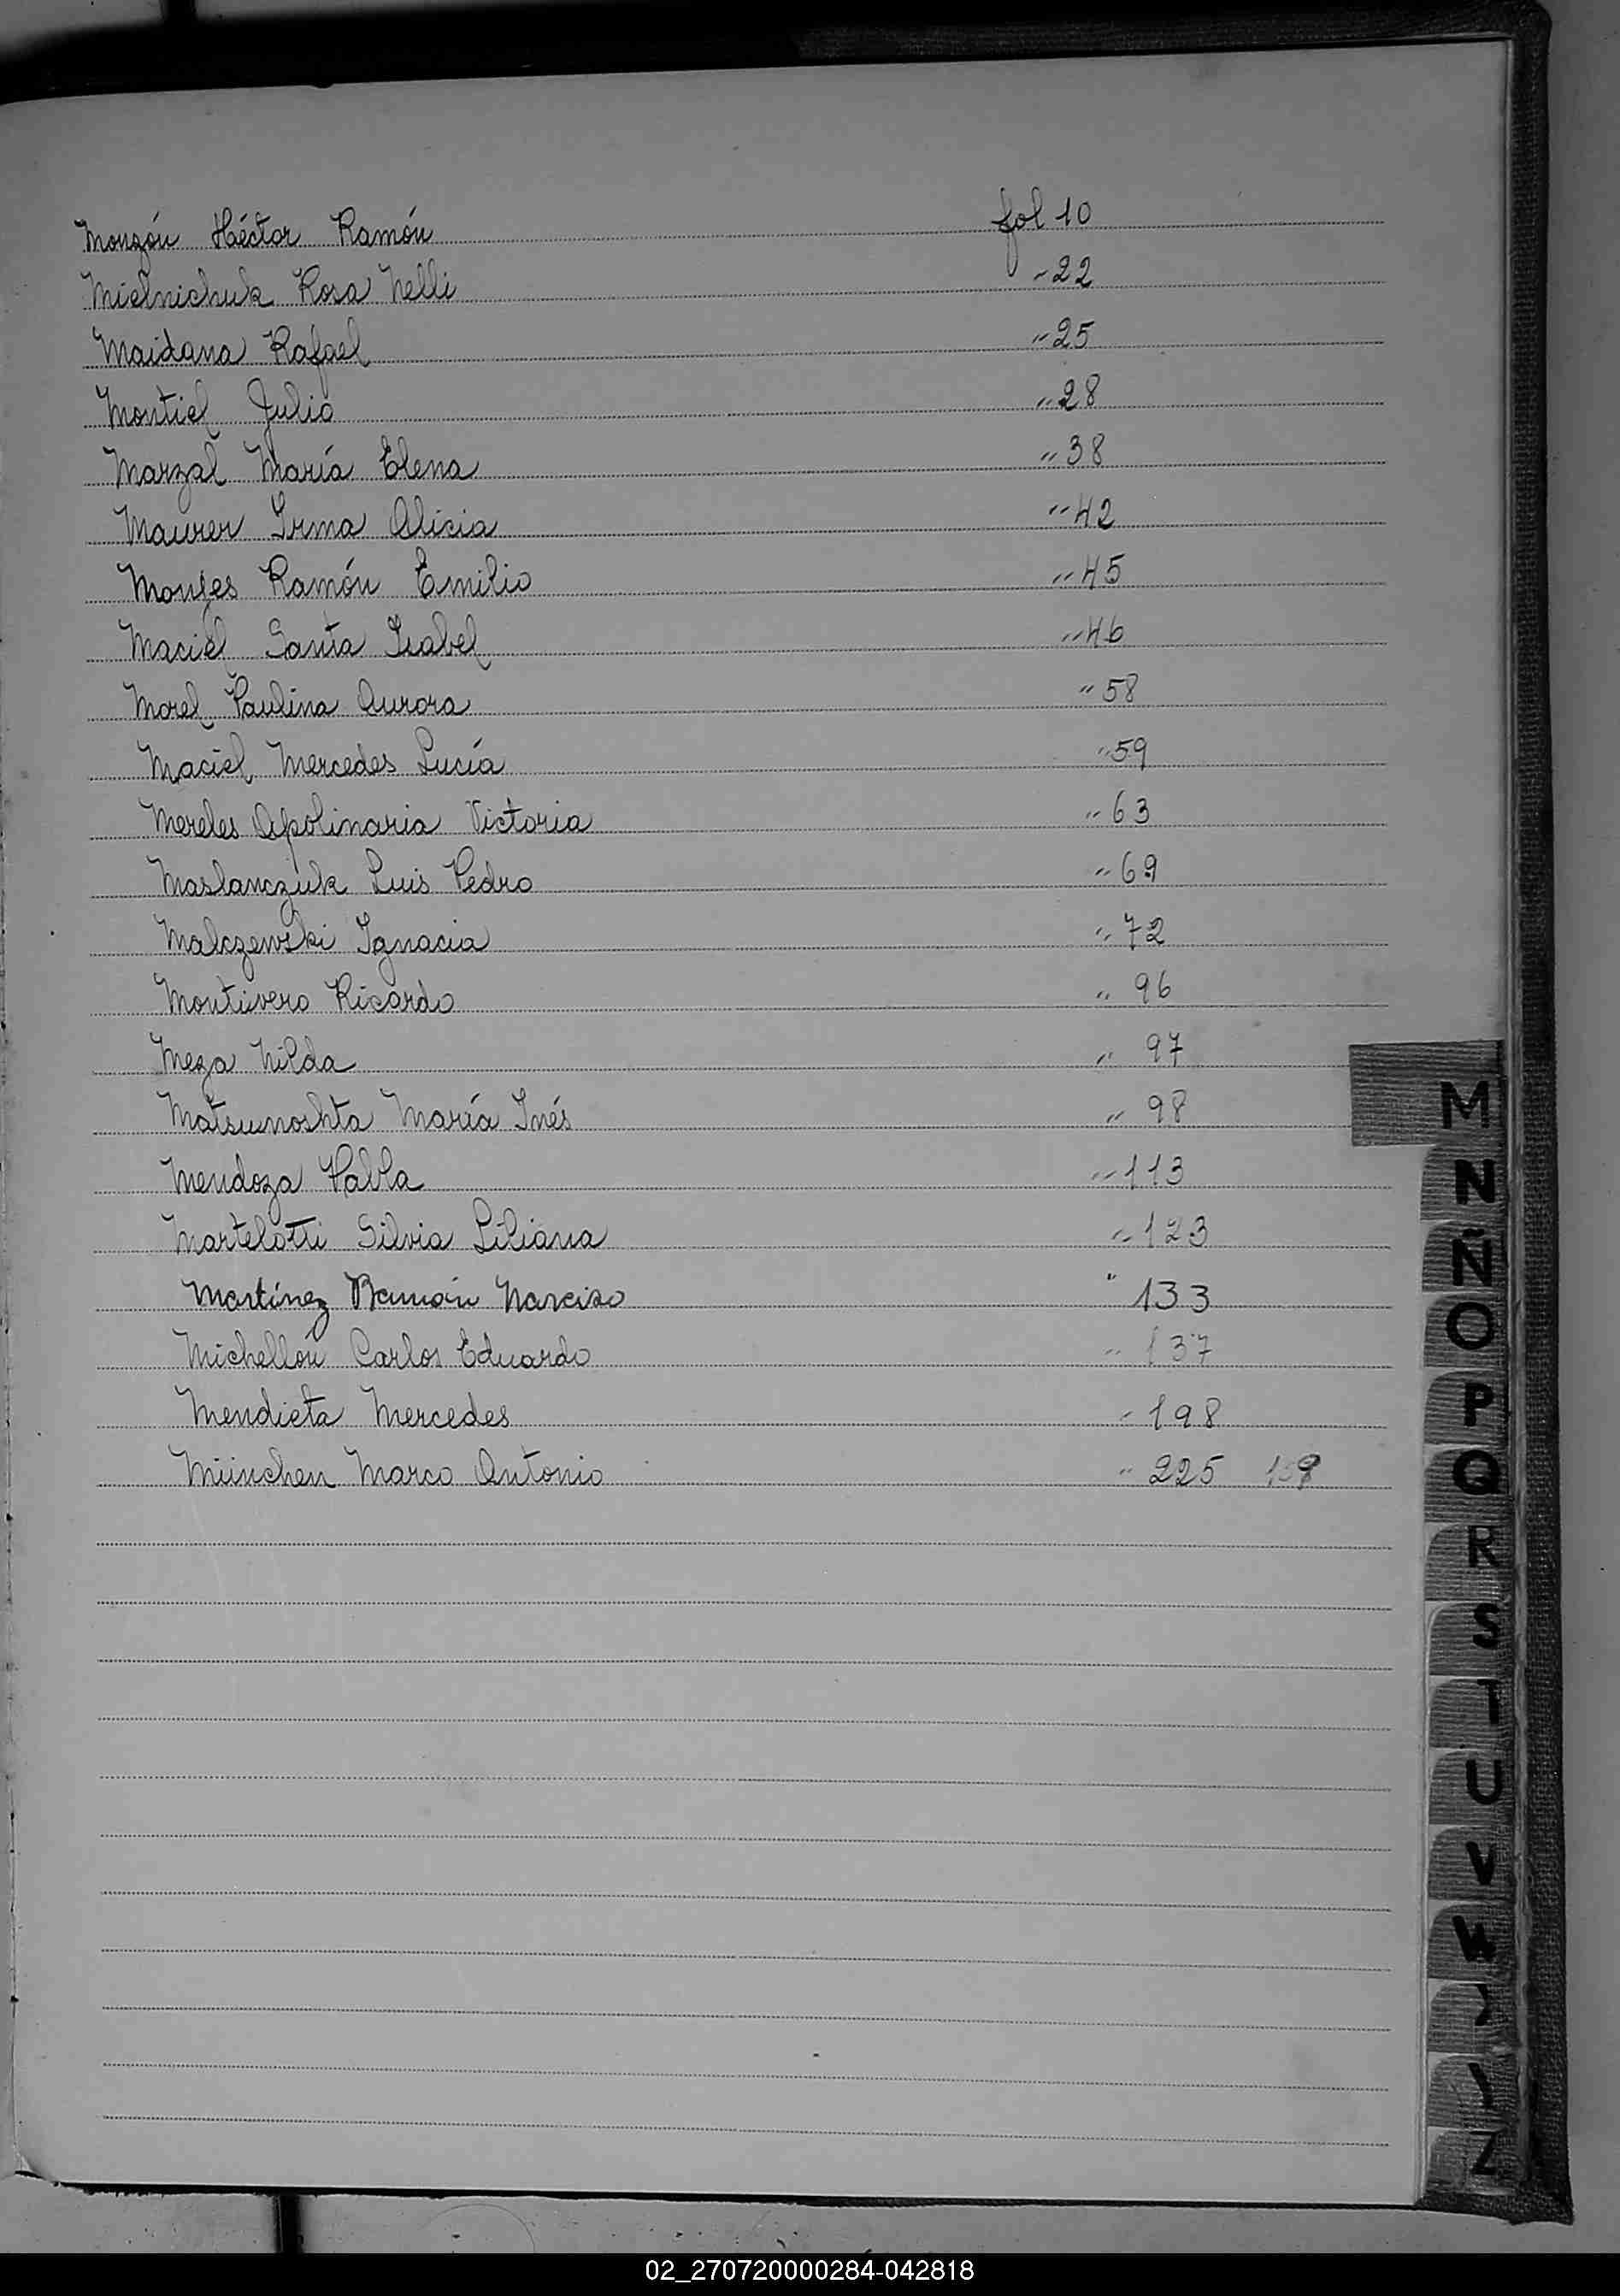 Monzón Héctor Ramón fol 10
Mielnichuk Rosa Nelli " 22
Maidana Rafael " 25
Montiel Julio " 28
Marzal María Elena " 38
Maurer Irma Alicia " 42
Monges Ramón Emilio " 45
Maciel Santa Isabel " 46
Morel Paulina Aurora " 58
Maciel Mercedes Lucía " 59
Mereles Apolinaria Victoria " 63
Maslanczuk Luis Pedro " 69
Malczewski Ignacia " 72
Montivero Ricardo " 96
Meza Nilda " 97
Matsumoshta María Inés " 98
Mendoza Pabla " 113
Martelotti Silvia Liliana " 123
Martínez Ramón Narciso " 133
Michellón Carlos Eduardo " 137
Mendieta Mercedes " 198
München Marco Antonio " 225
M
N
Ñ
O
P
Q
R
S
T
U
V
W
Z
02_270720000284-042818